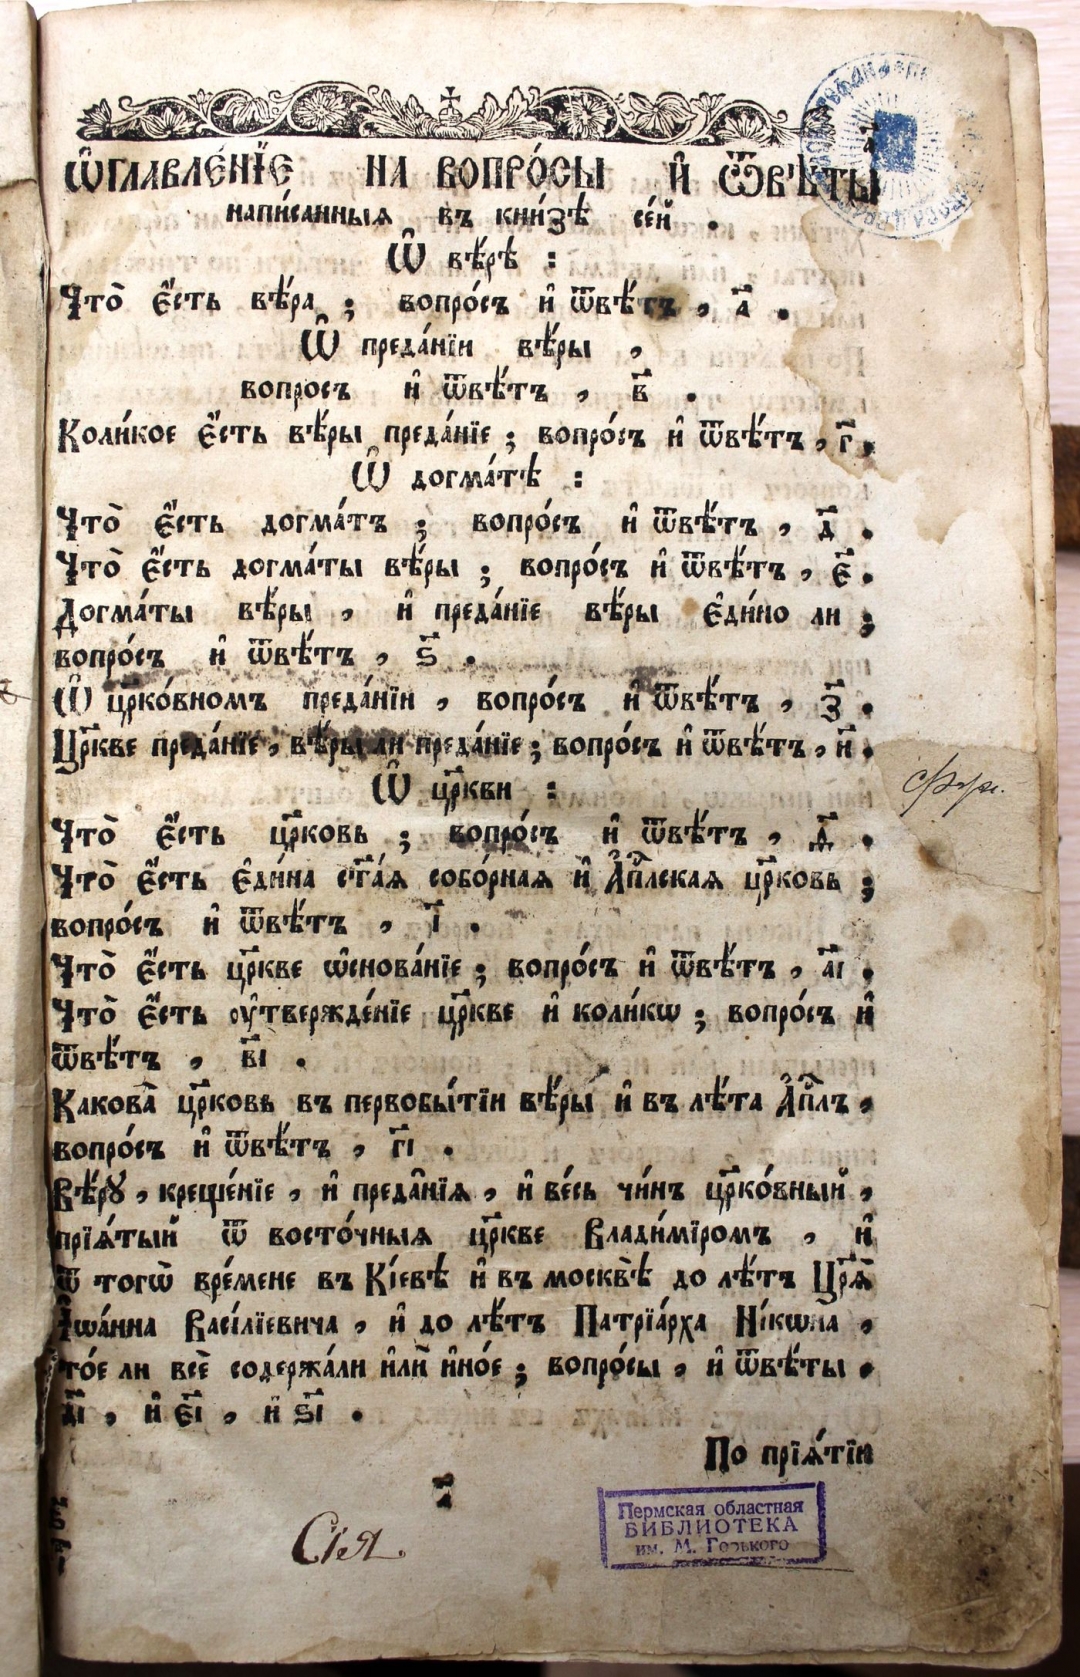 Ѡ҆главле́нїе на вопро́сы и҆ ѿвѣ́ты
напи́санныя въ кни́зѣ се́й .
Ѽ вѣ́рѣ :
Что̀ є҆́сть вѣ́ра ; вопро́съ и҆ ѿвѣ́тъ , а҃ .
Ѽ преда́нїи вѣ́ры ,
вопросъ и҆ ѿвѣ́тъ , в҃ .
Коли́кое є҆́сть вѣ́ры преда́нїе ; вопро́съ и҆ ѿвѣ́тъ , г҃ ,
Ѽ догма́тѣ :
Что̀ є҆́сть догма́тъ ; вопро́съ и҆ ѿвѣ́тъ , д҃ .
Что̀ є҆́сть догма́ты вѣ́ры ; вопро́съ и҆ ѿвѣ́тъ , є҃ .
Догма́ты вѣ́ры , и҆ преда́нїе вѣ́ры є҆ди́но ли ;
вопро́съ и҆ ѿвѣ́тъ , ѕ҃ .
Ѽ цр҃ко́вномъ преда́нїи , вопро́съ и҆ ѿвѣ́тъ , з҃ .
Цр҃кве преда́нїе , вѣ́ры ли преда́нїе ; вопро́съ и҆ ѿвѣ́тъ , и҃ .
Ѽ цр҃кви :
Что̀ є҆́сть цр҃ковь ; вопро́съ и҆ ѿвѣ́тъ , ѳ҃ .
Что̀ є҆́сть є҆ди́на ст҃а́я собо́рная и҆ А҆пⷭ҇лская цр҃ковь ;
вопро́съ и҆ ѿвѣ́тъ , і҃ .
Что̀ є҆́сть цр҃кве ѡ҆снова́нїе ; вопро́съ и҆ ѿвѣ́тъ , а҃і ,
Что̀ є҆́сть ᲂу҆твержде́нїе цр҃кве и҆ коли́кѡ ; вопро́съ и҆
ѿвѣ́тъ , в҃і .
Какова̀ цр҃ковь въ первобы́тїи вѣ́ры и҆ въ лѣ́та А҆пⷭ҇лъ ,
вопро́съ и҆ ѿвѣ́тъ , г҃і .
Вѣ́рꙋ , креще́нїе , и҆ преда̑нїя , и҆ ве́сь чи́нъ цр҃ко́вный ,
прїѧ́тый ѿ восто́чныя цр҃кве Влади́мїромъ , и҆
ѿ тогѡ̀ вре́мене въ Кі́евѣ и҆ въ москвѣ̀ до лѣ́тъ Цр҃ѧ̀
Іѡа́нна Васі́лїевича , и҆ до лѣ́тъ Патрїа́рха Ні́кѡна ,
то́е ли всѐ содержа́ли и҆лѝ и҆но́е ; вопро́сы , и҆ ѿвѣ́ты .
д҃і , и҆ є҃і , и҆ ѕ҃і .
По прїѧ́тїи
а҃
Сїя
Пермская областная
БИБЛИОТЕКА
им. М. Горького